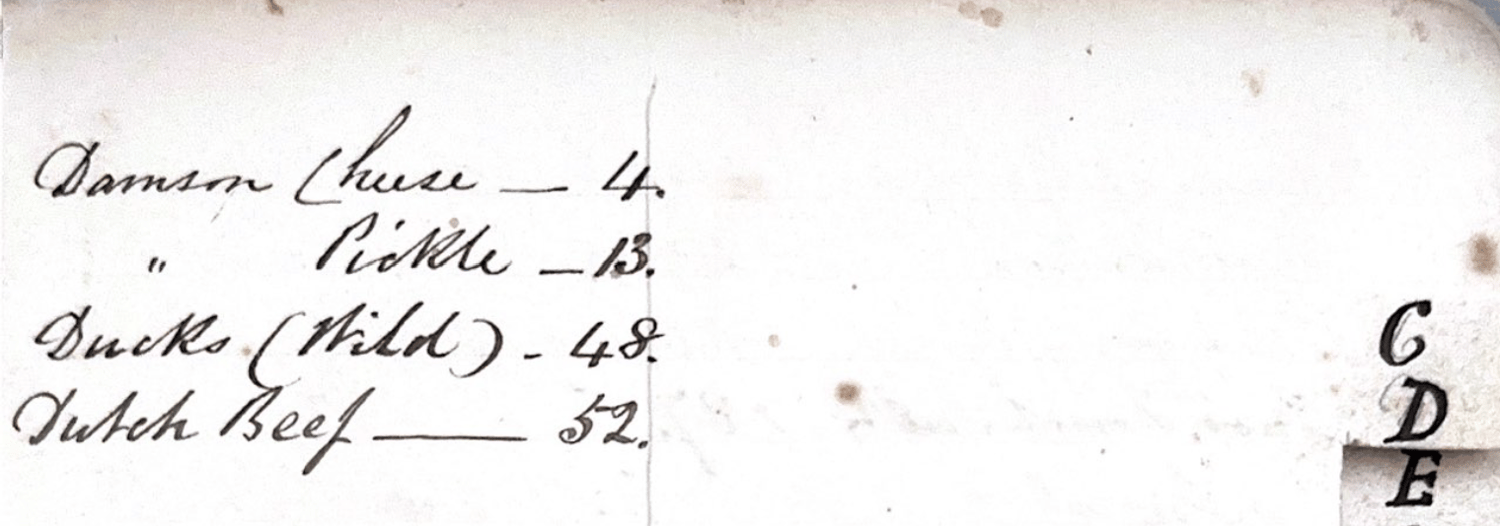 Damson Cheese — 4.
" Pickle — 13.
Ducks (Wild) - 48.
Dutch Beef —— 52.
C
D
E